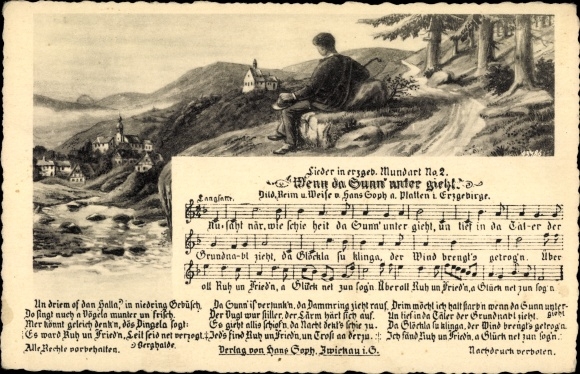 Lieder in erzgeb. Mundart No. 2.
"Wenn da Sunn' unter gieht."
Bild, Reim u. Weise v. Hans Soph a. Platten i. Erzgebirge.
Langsam.
Nu saht när, wie schie heit da Sunn' unter gieht, un tief in da Täl-er der
Grundna-bl zieht, da Glöckla su klinga, der Wind brengt's getrog'n. Über
oll Ruh un Fried'n, a Glück net zun sog'n Überoll Ruh un Fried'n, a Glück net zun sog'n
Un driem of dan Halla,? in niedring Gebüsch,
Do singt auch a Vögela munter un frisch.
Mer könnt geleich denk'n, dös Dingela sogt:
Es ward Ruh un Fried'n, Leit seid net verzogt.
? Berghalde.
Da Sunn' is versunk'n, da Dammring zieht rauf,
Der Vugl wur stiller, der Lärm härt sich auf.
Es gieht allis schlof'n, da Nacht deckt's schie zu
Jeds find Ruh un Fried'n, un Trost aa derzu.
Drim möcht ich halt starb'n wenn da Sunn unter-
gieht
Un tief in da Täler der Grundnabl zieht.
Da Glöckla su klinga, der Wind brengt's getrog'n
Ich fänd Ruh un Fried'n, a Glück net zun sog'n.
Alle Rechte vorbehalten.
Verlag von Hans Soph, Zwickau i. S.
Nachdruck verboten.